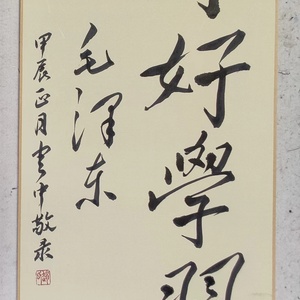 好學習
毛澤东
甲辰正月书中敬录